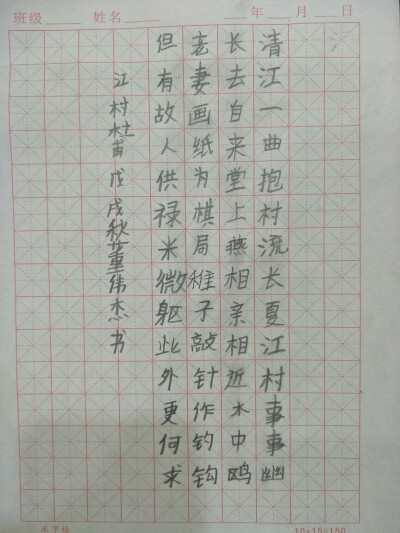 班级 姓名 年 月 日
清江一曲抱村流长夏江村事事幽
长去自来堂上燕相亲相近水中鸥
老妻画纸为棋局稚子敲针作钓钩
但有故人供禄米微躯此外更何求
江村杜甫戊戌秋董伟杰书
米字格 10x15=150